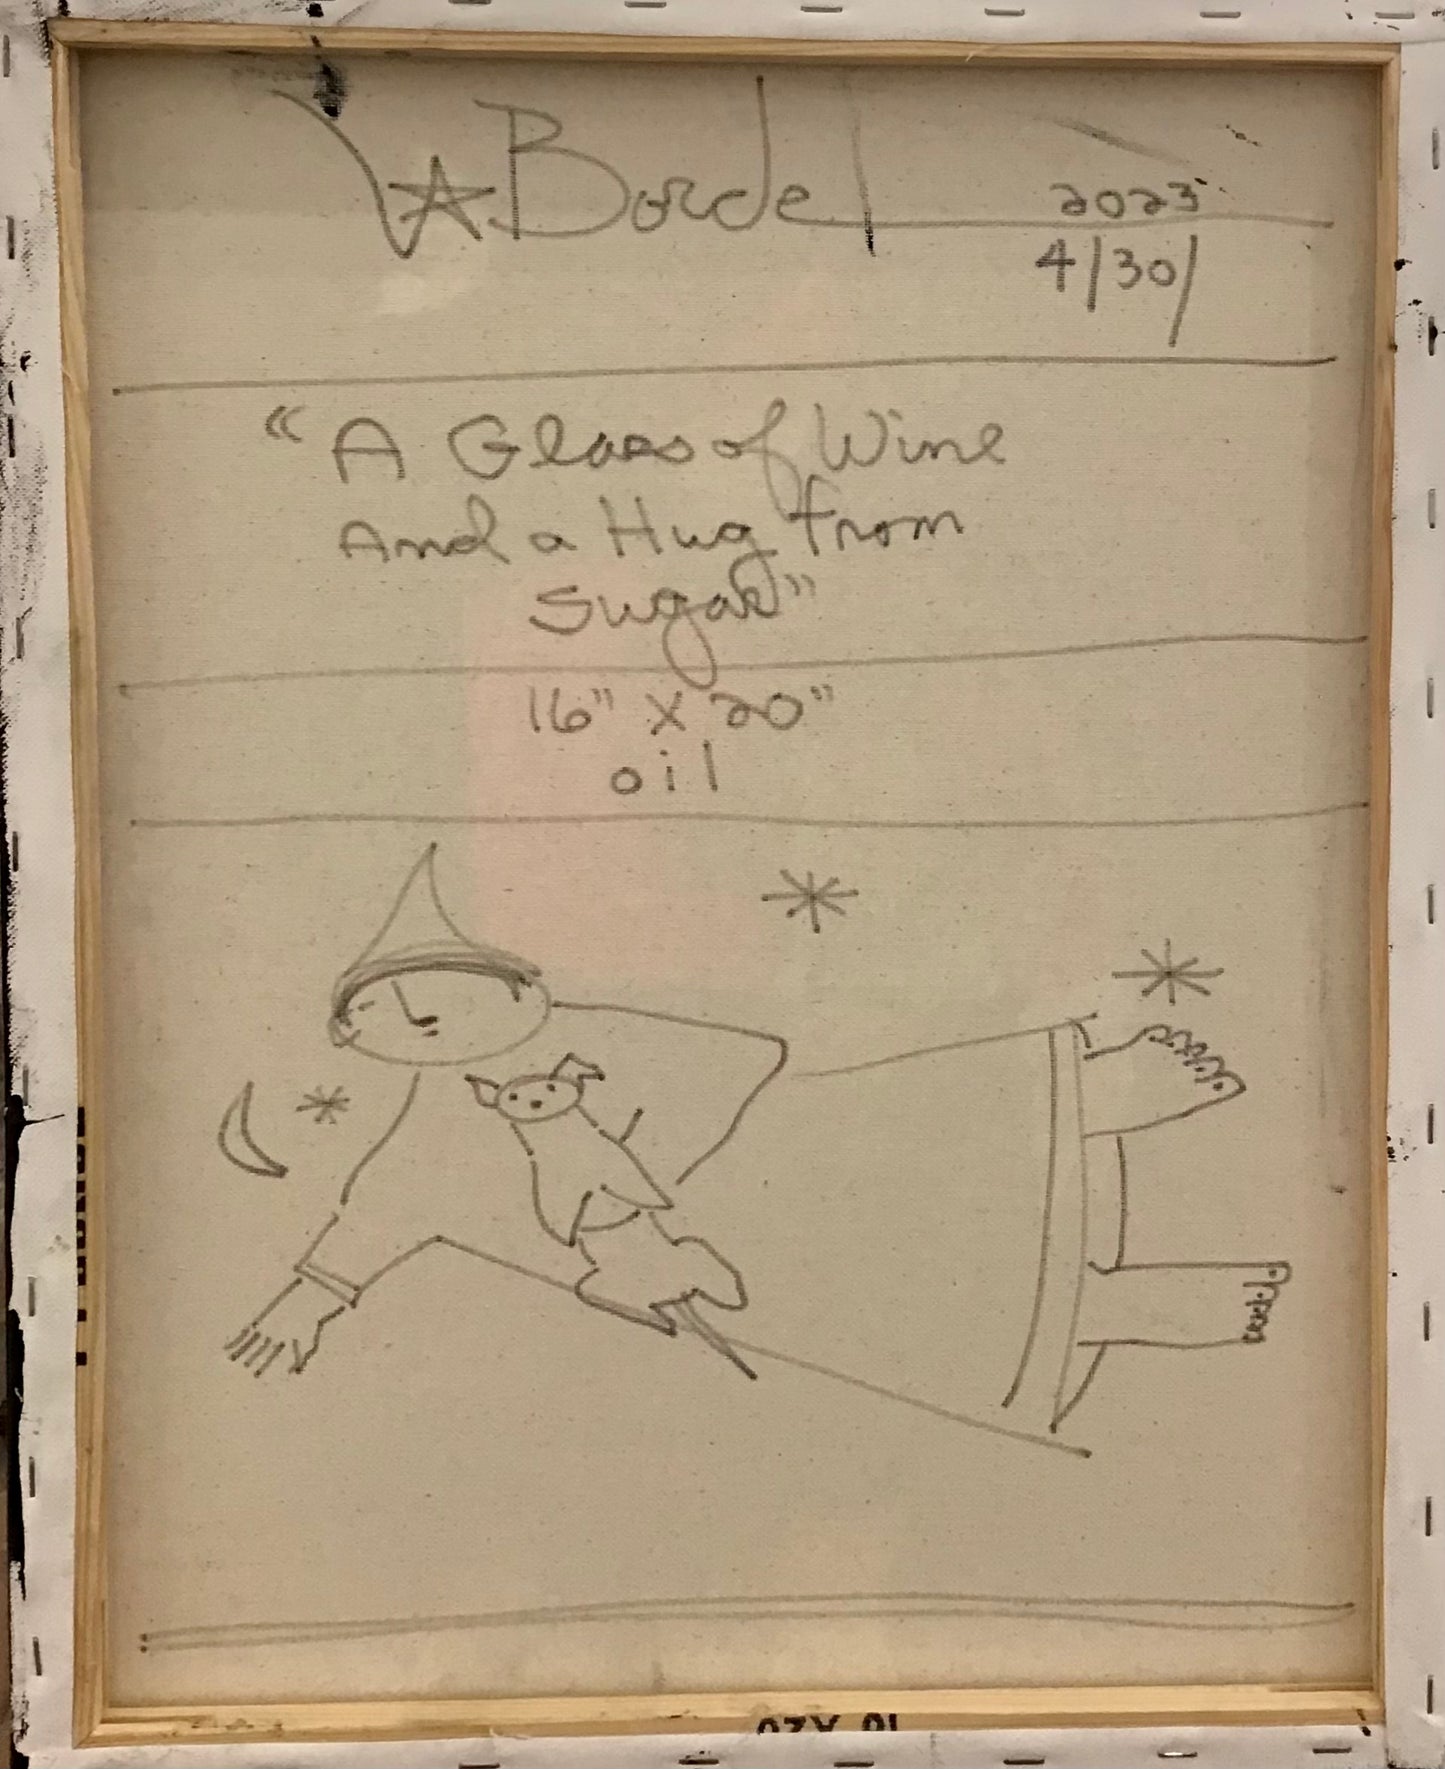 Bordel
2023
4/30/
"A Glass of Wine
And a Hug From
Sugar"
16" x 20"
oil